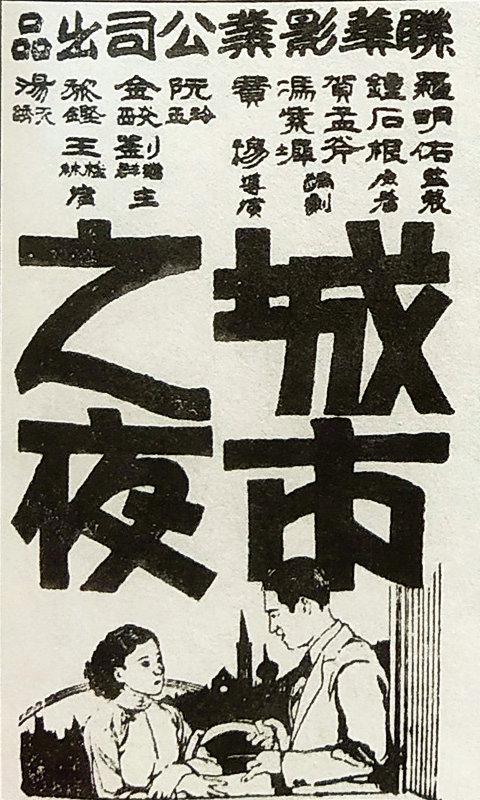 聯華影業公司出品
羅明佑監製
鐘石根
賀孟斧
馮紫墀編劇
費穆導演
阮玲玉
金焰 劉繼群 主
黎鏗 王桂林 演
湯天繡
城市
之夜